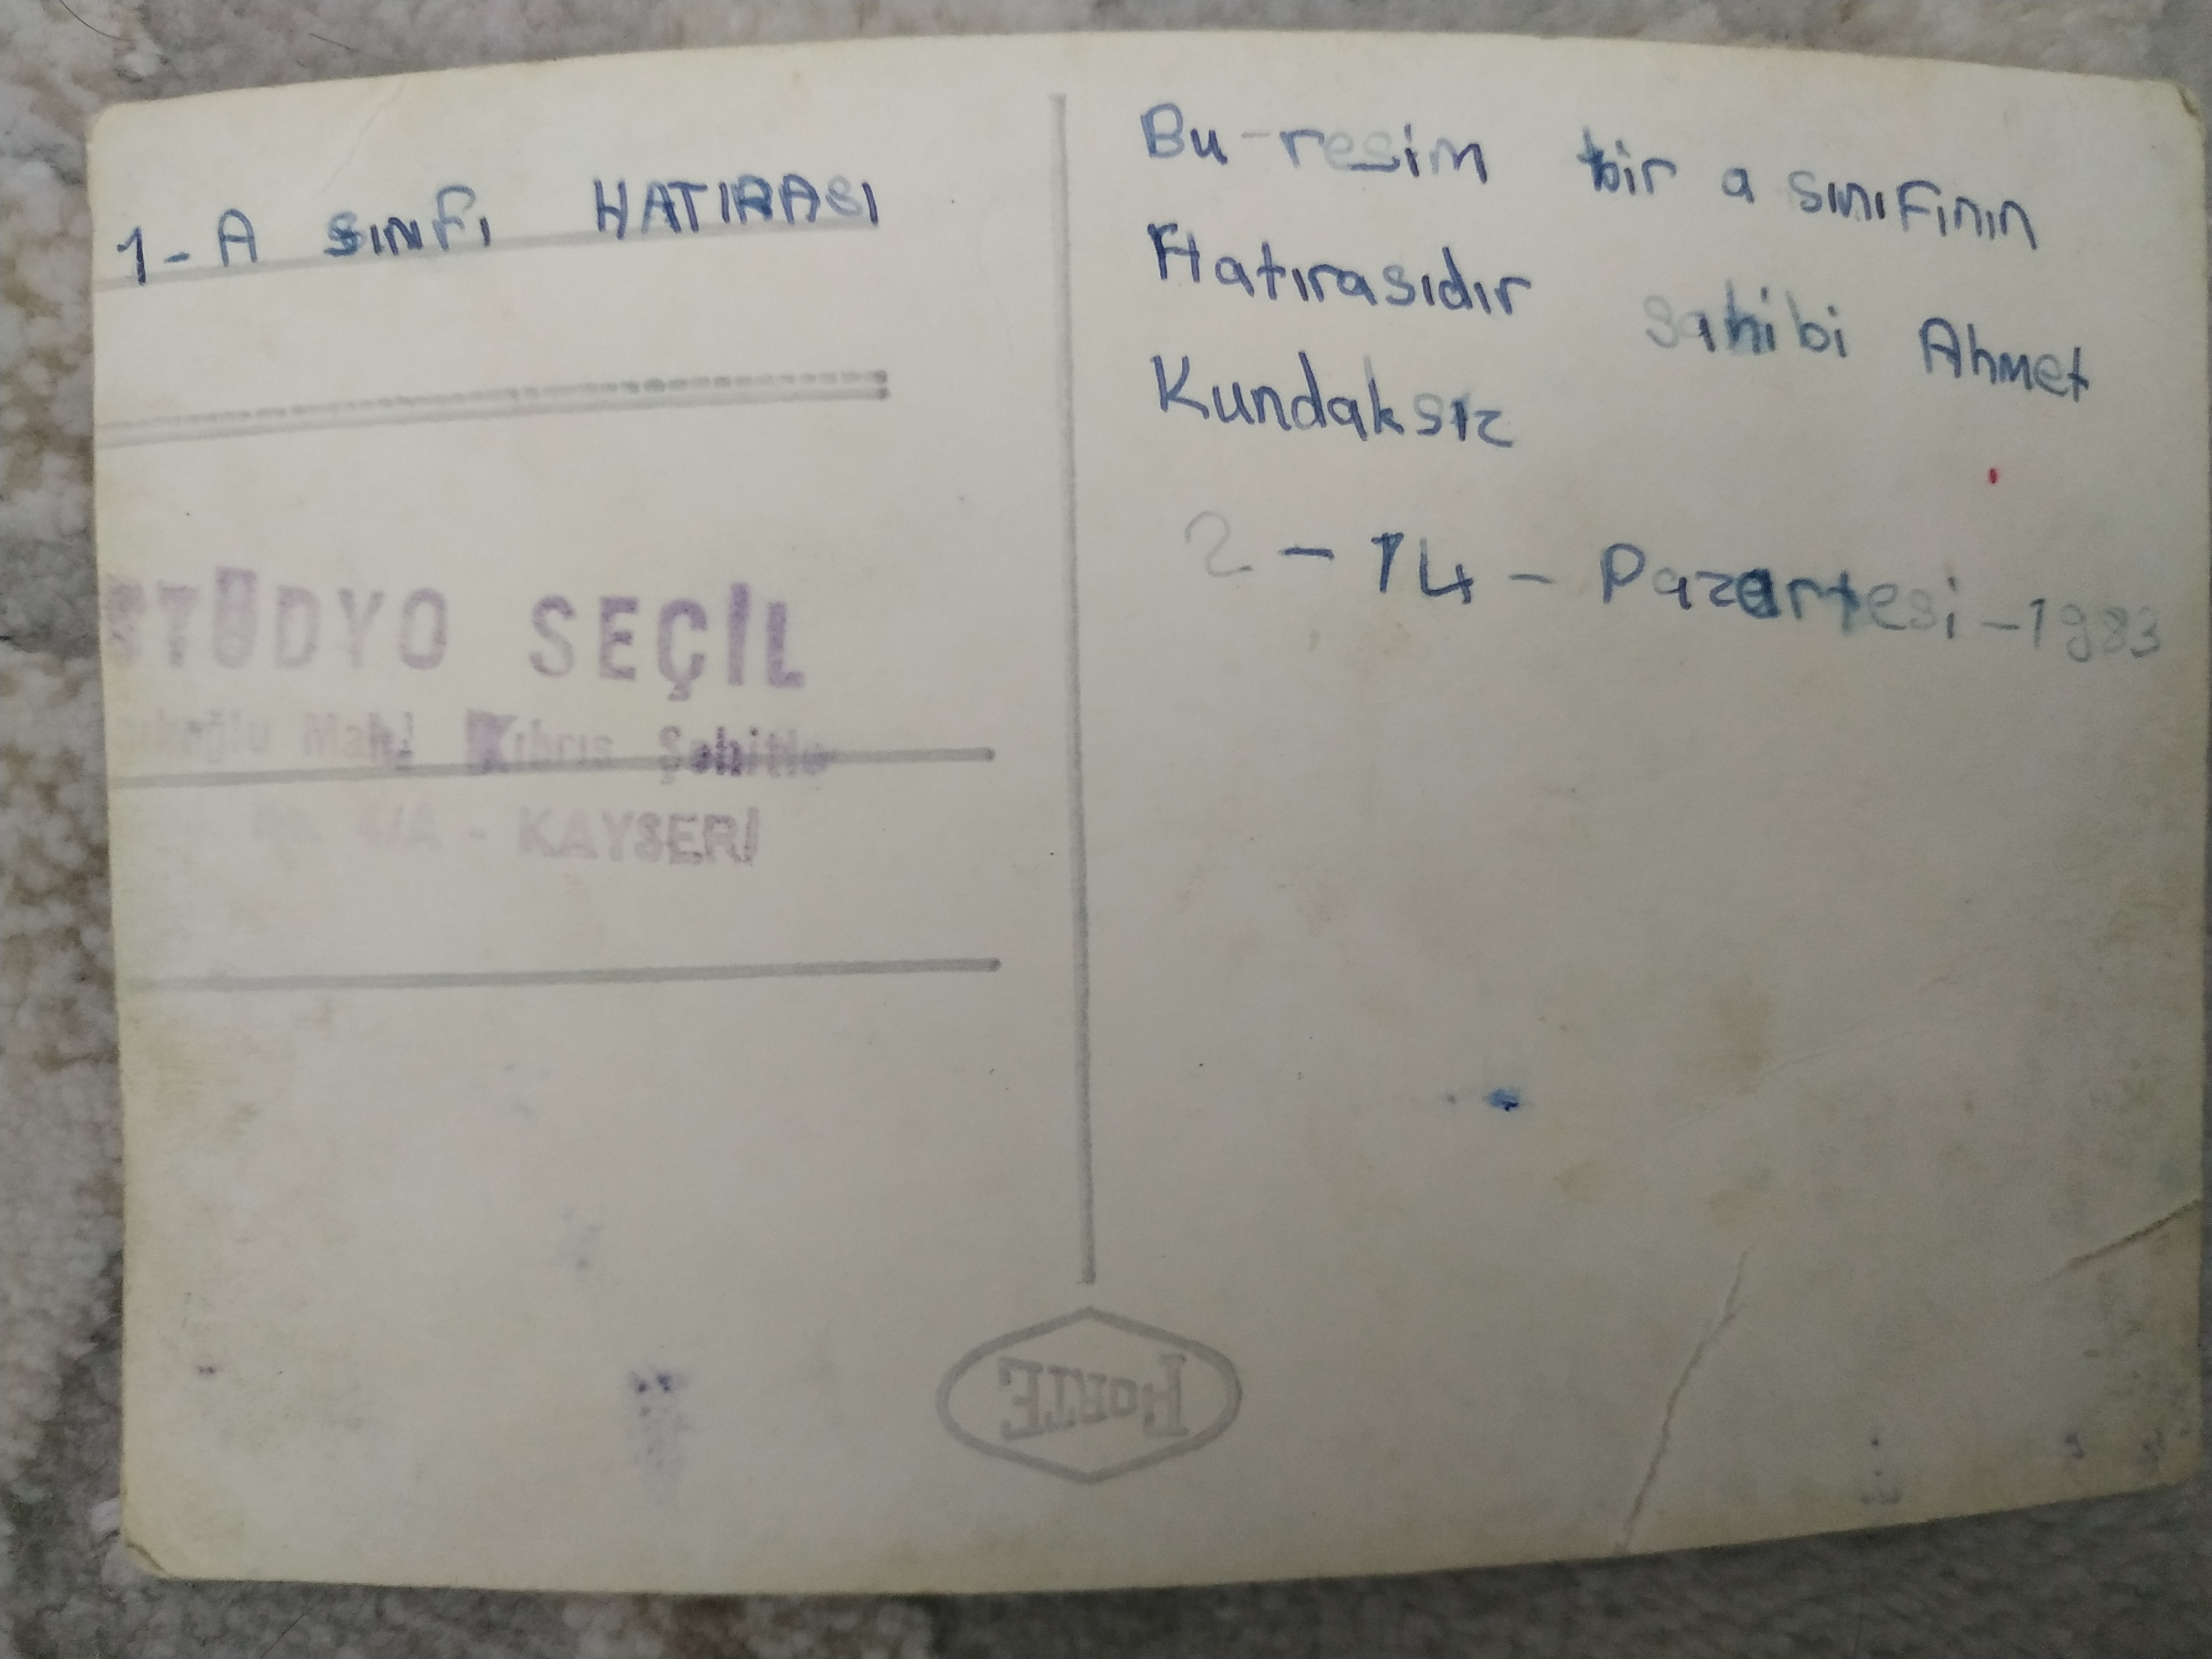 1-A SINFI HATIRASI
STÜDYO SEÇİL
Mah. Kıbrıs Şehitle
No. 4/A - KAYSERİ
Bu-resim bir a sınıfının
Hatırasıdır sahibi Ahmet
Kundaksız
2-14-Pazartesi-1983
FORTE